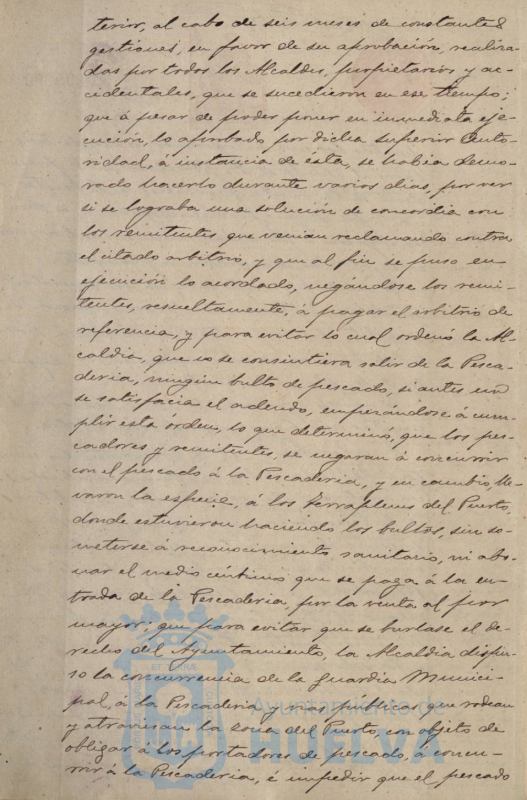 terior, al cabo de seis meses de constantes
gestiones, en favor de su aprobación, realiza-
das por todos los Alcaldes, propietarios y ac-
cidentales, que se sucedieron en ese tiempo;
que á pesar de poder poner en inmediata eje-
cución, lo aprobado por dicha superior Auto-
ridad, á instancia de ésta, se habia demo-
rado hacerlo durante varios dias, por ver
si se lograba una solución de concordia con
los remitentes que venian reclamando contra
el citado arbitrio, y que al fin se puso en
ejecución lo acordado, negándose los remi-
tentes, resueltamente, á pagar el arbitrio de
referencia, y para evitar lo cual ordenó la Al-
caldia, que no se consintiera salir de la Pesca-
deria, ningún bulto de pescado, si antes no
se satisfacia el adeudo, empezándose á cum-
plir esta orden, lo que determinó, que los pes-
cadores y remitentes, se negaran á concurrir
con el pescado á la Pescaderia, y en cambio, lle-
varon la especie, á los terraplenes del Puerto,
donde estuvieron haciendo los bultos, sin so-
meterse á reconocimiento sanitario, ni abo-
nar el medio céntimo que se paga á la en-
trada de la Pescaderia, por la venta al por
mayor; que para evitar que se burlase el de-
recho del Ayuntamiento, la Alcaldia dispu-
so la concurrencia de la Guardia Munici-
pal, á la Pescaderia y vias públicas que rodean
y atraviesan la zona del Puerto, con objeto de
obligar á los portadores de pescado, á concu-
rrir á la Pescaderia, é impedir que el pescado
Ayuntamiento de
HUELVA